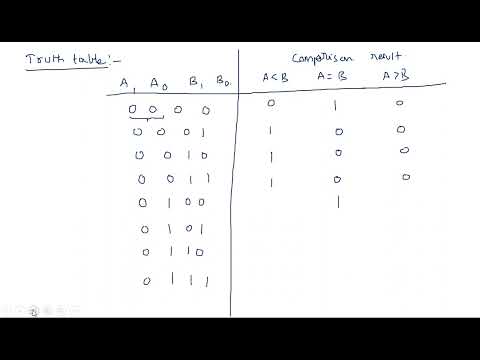 Truth table:-
Comparison result
A₁ A₀ B₁ B₀ A<B A=B A>B
0 0 0 0 0 1 0
0 0 0 1 1 0 0
0 0 1 0 1 0 0
0 0 1 1 1 0 0
0 1 0 0 1
0 1 0 1
0 1 1 0
0 1 1 1